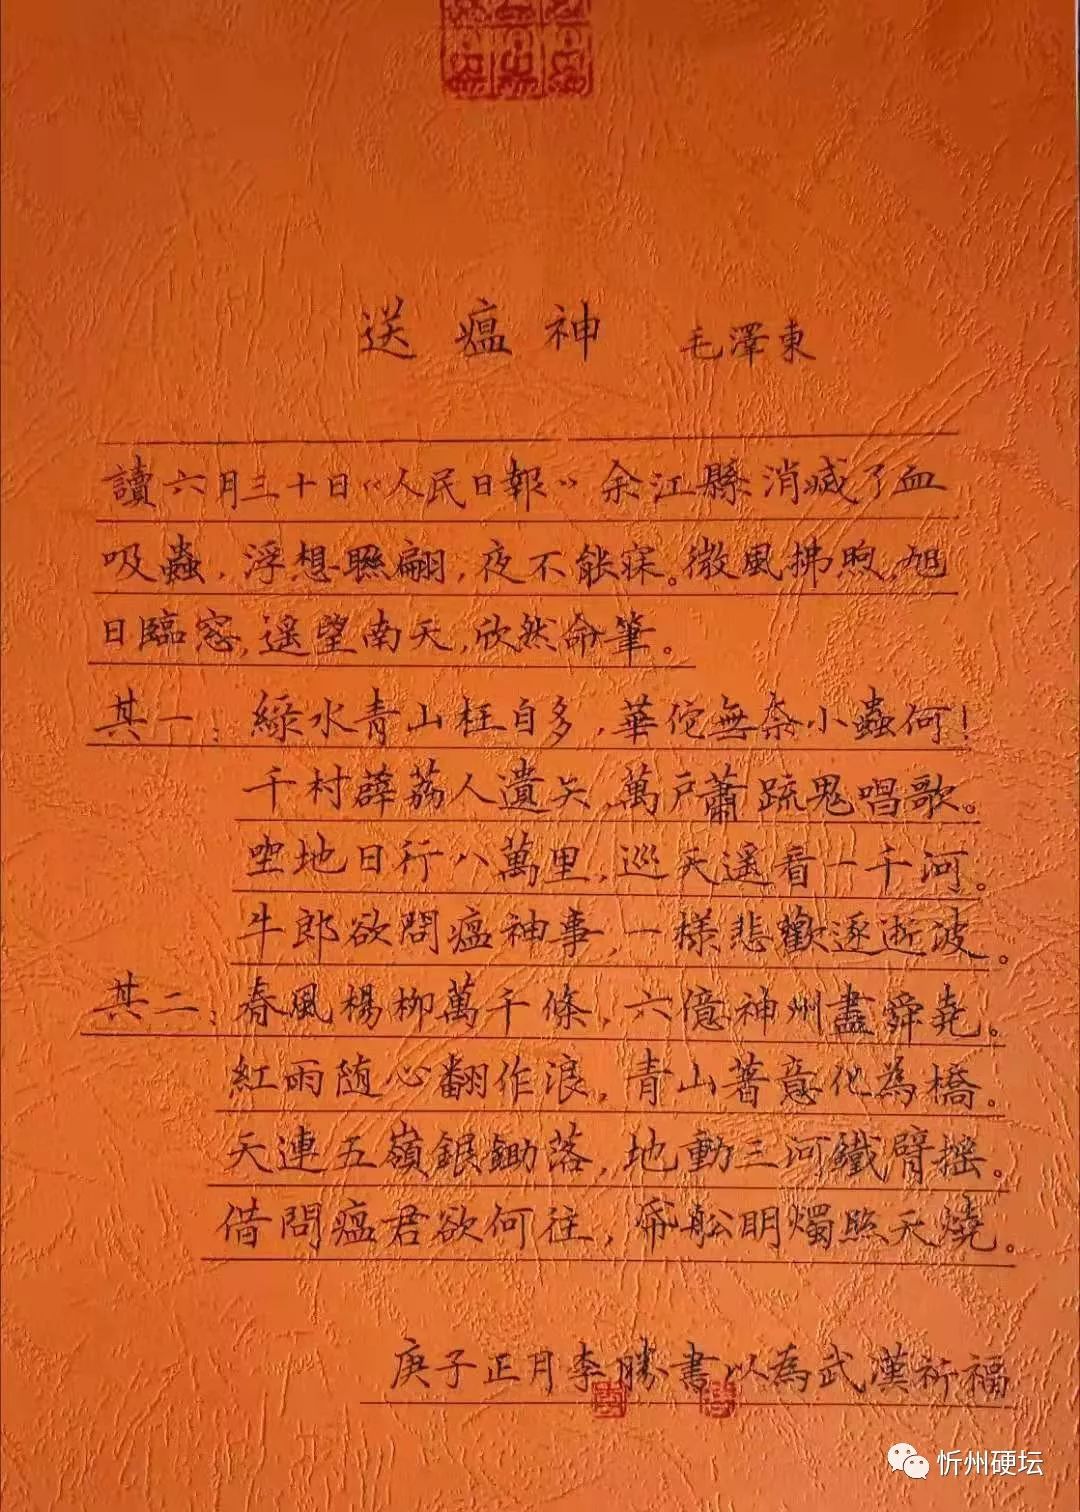 送瘟神 毛澤東
讀六月三十日《人民日報》余江縣消滅了血
吸蟲，浮想聯翩，夜不能寐。微風拂煦，旭
日臨窓，遥望南天，欣然命筆。
其一：綠水青山枉自多，華佗無奈小蟲何！
千村薜荔人遺矢，萬戶蕭疏鬼唱歌。
坐地日行八萬里，巡天遥看一千河。
牛郎欲問瘟神事，一樣悲歡逐逝波。
其二：春風楊柳萬千條，六億神州盡舜堯。
紅雨随心翻作浪，青山著意化為橋。
天連五嶺銀鋤落，地動三河鐵臂摇。
借問瘟君欲何往，帋船明燭照天燒。
庚子正月李勝書以為武漢祈福
忻州硬坛